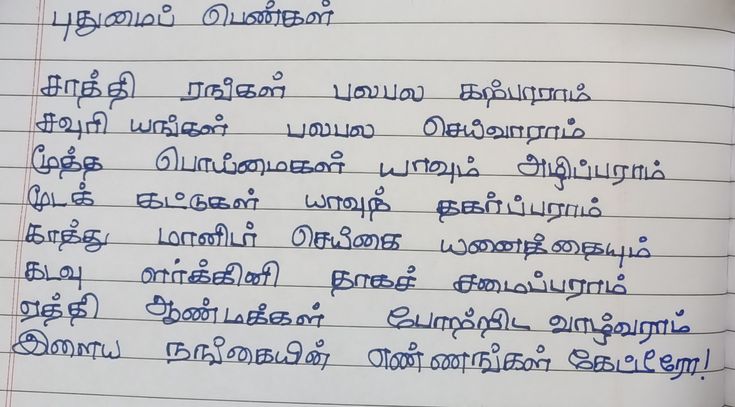 புதுமைப் பெண்கள்
சாத்தி ரங்கள் பலபல கற்பாராம்
சவுரி யங்கள் பலபல செய்வாராம்
மூத்த பொய்மைகள் யாவும் அழிப்பராம்
மூடக் கட்டுகள் யாவுந் தகர்ப்பராம்
காத்து மானிடர் செய்கை யனைத்தையும்
கடவு ளர்க்கினி தாகச் சமைப்பராம்
ஏத்தி ஆண்மக்கள் போற்றிட வாழ்வராம்
இளைய நங்கையின் எண்ணங்கள் கேட்டீரோ!